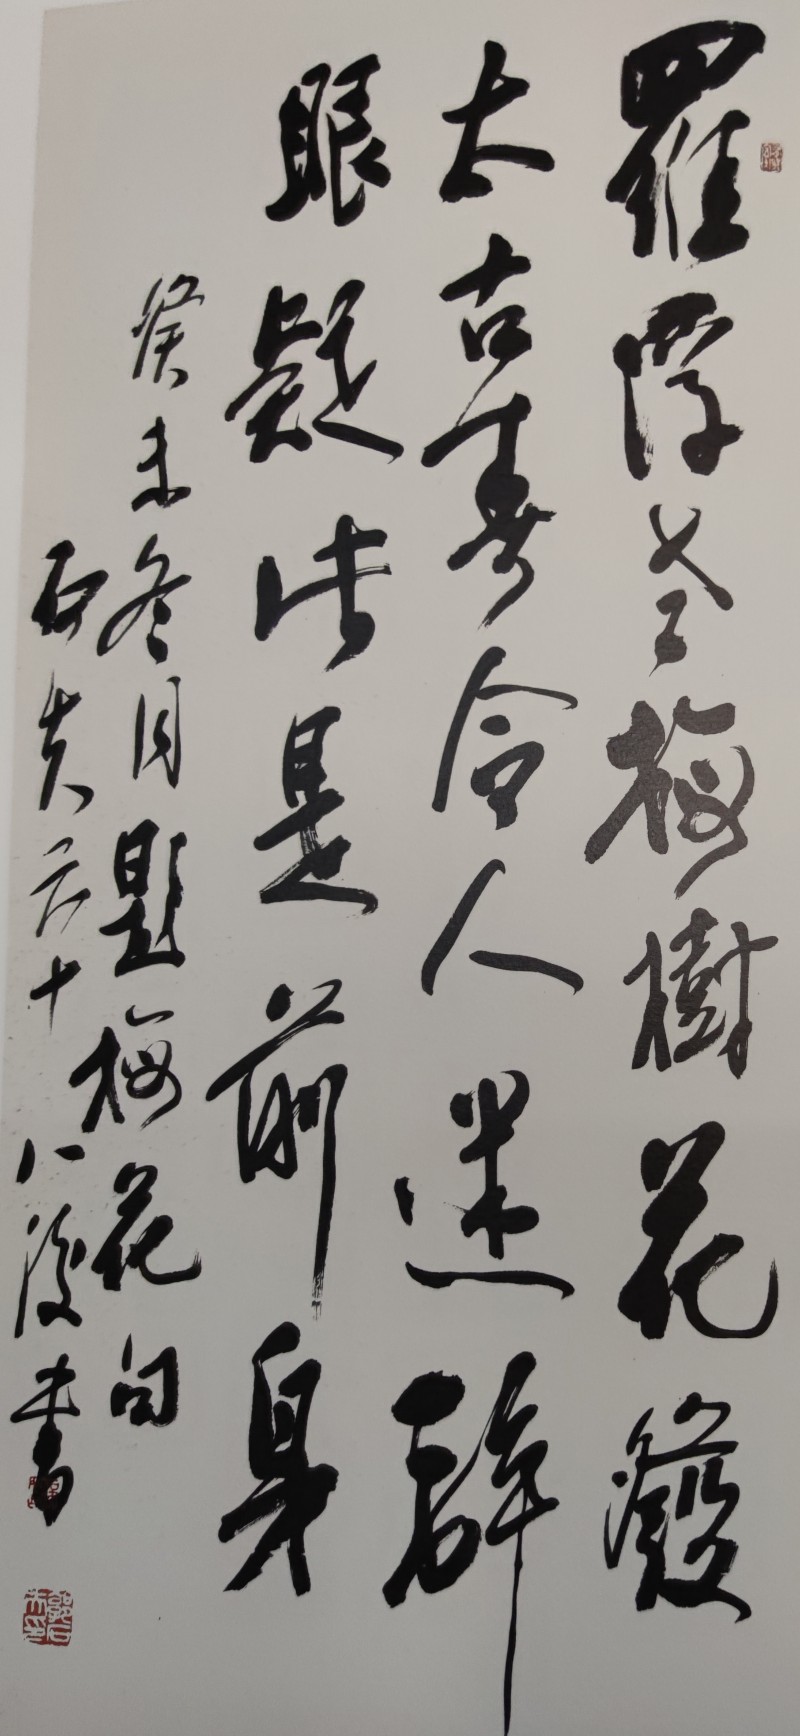 羅浮老梅樹花發
太古春令人迷醉
眼疑是前身
癸未冬月題梅花句
石夫六十八後書
郭石夫印